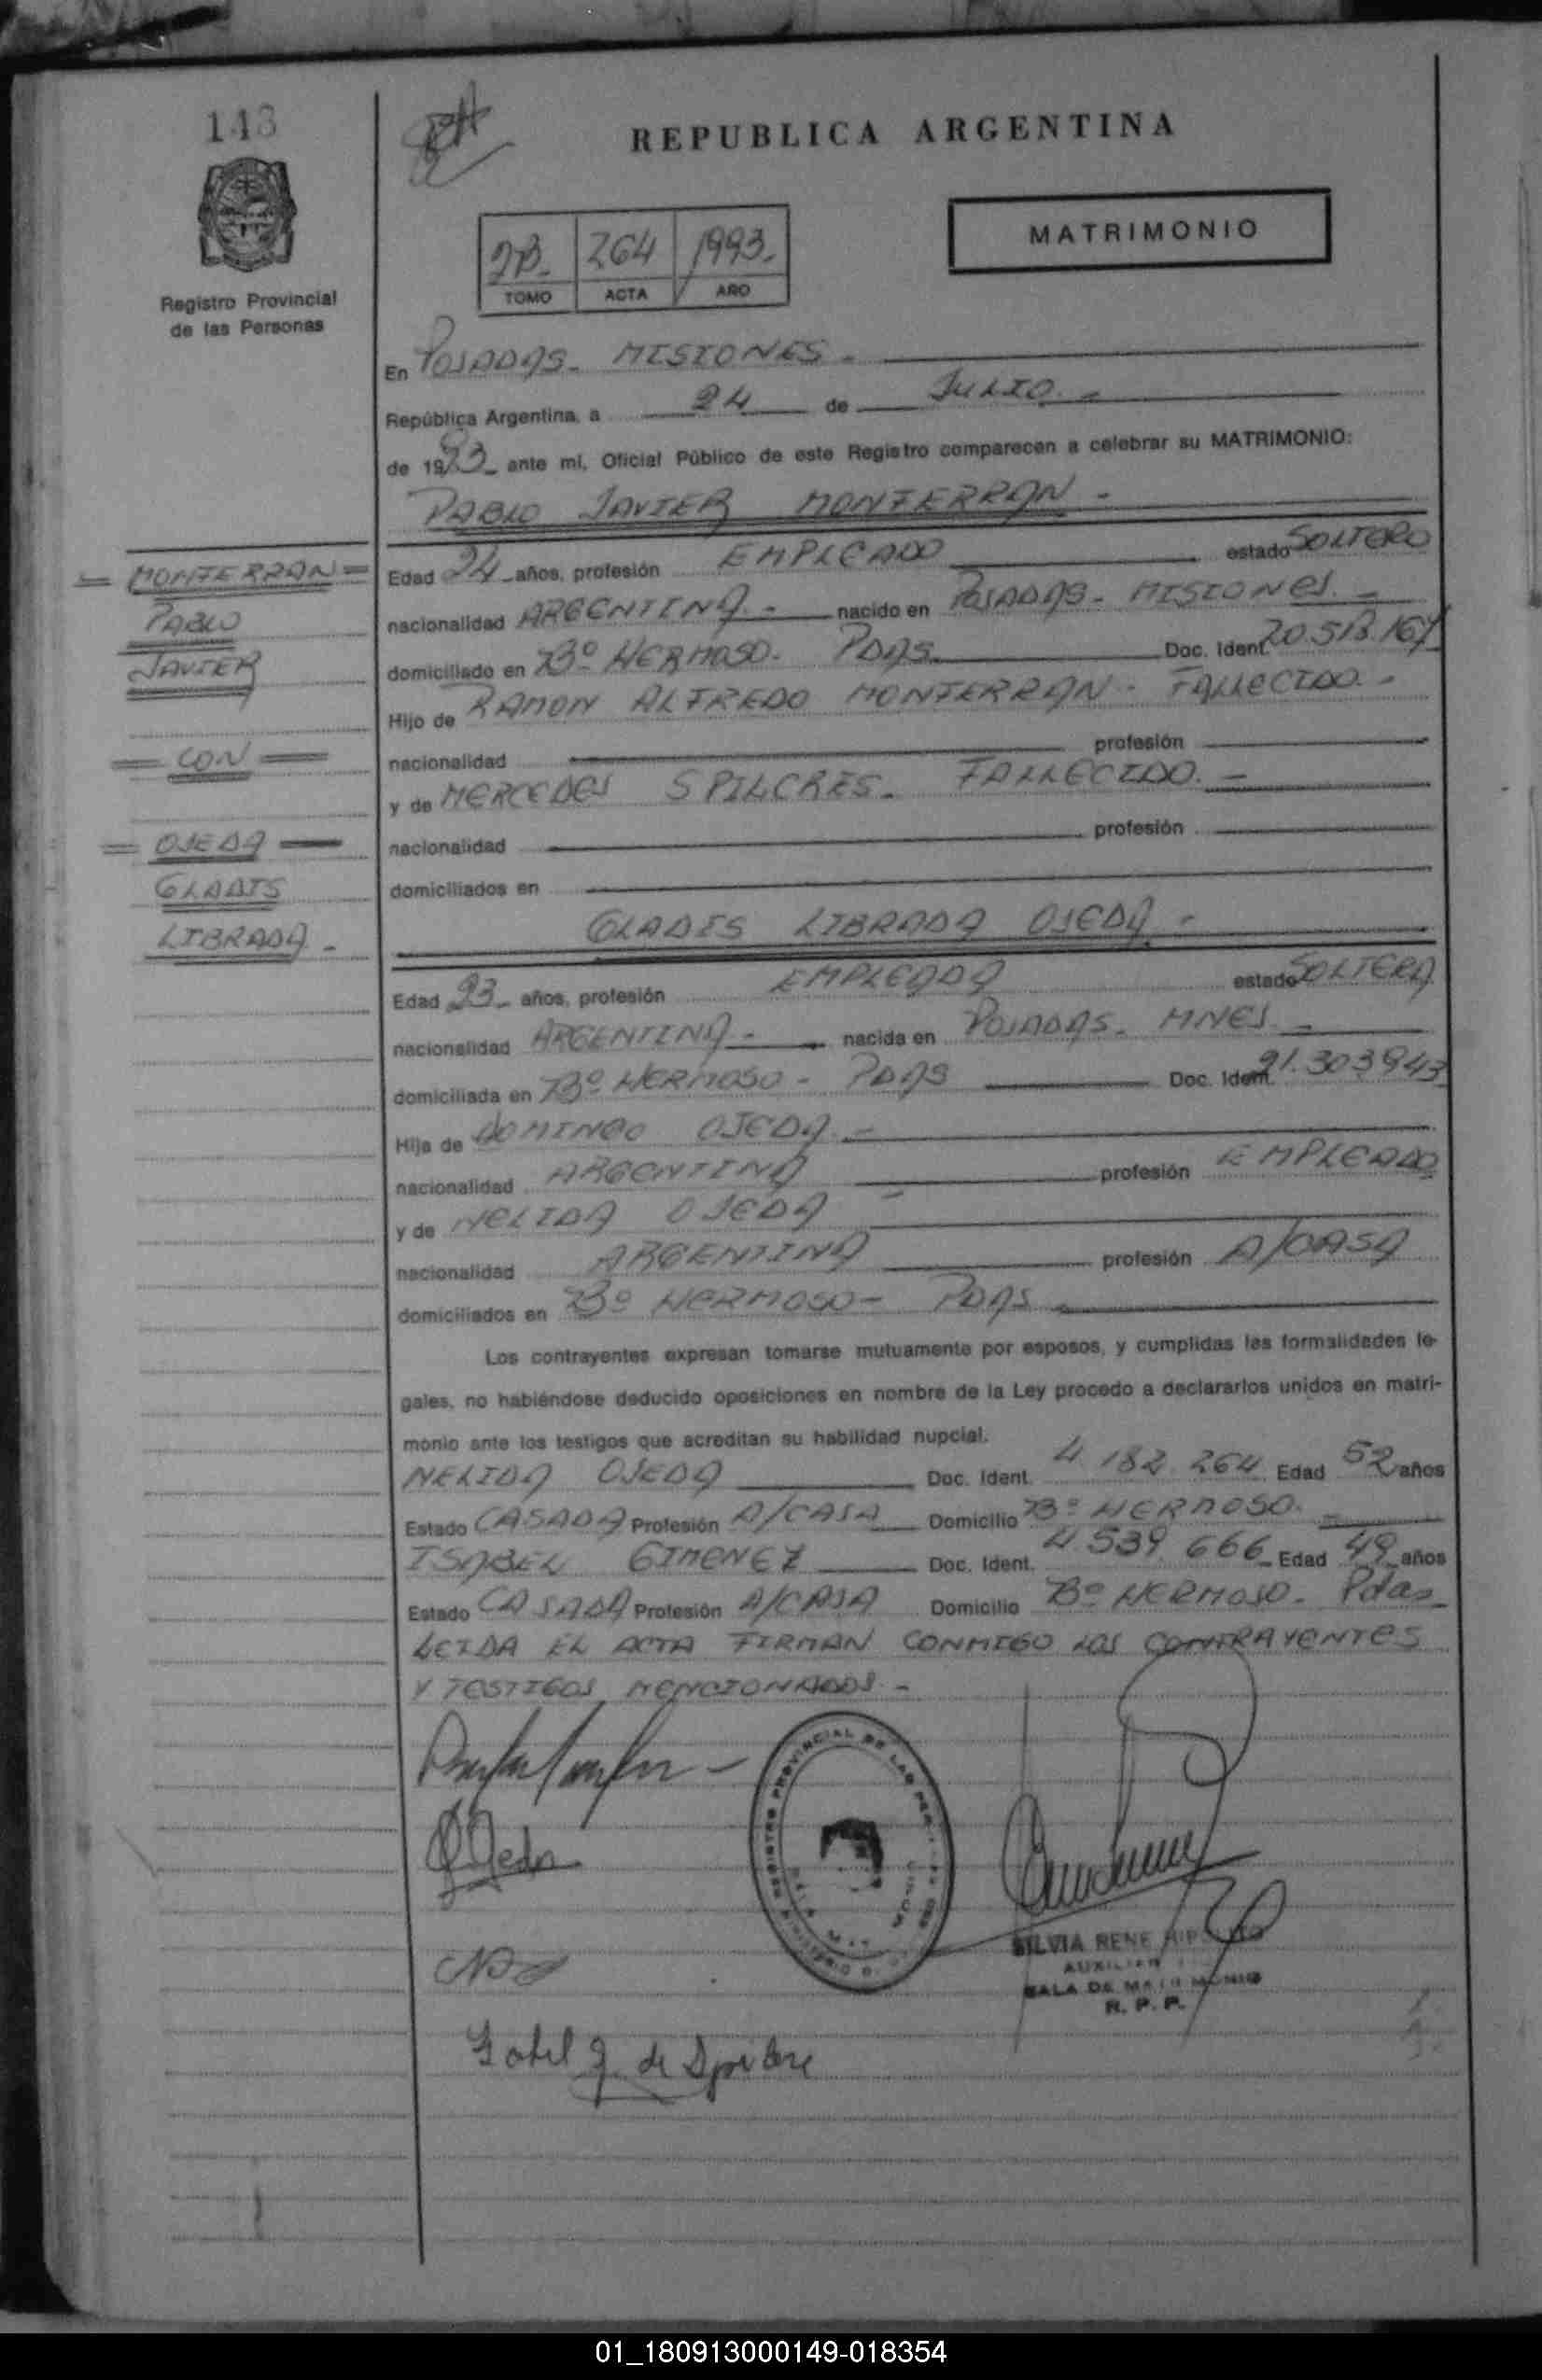 143
REPUBLICA ARGENTINA
MATRIMONIO
2B. 264 1993.
TOMO ACTA AÑO
Registro Provincial
de las Personas
En POSADAS - MISIONES -
República Argentina, a 24 de JULIO. -
de 1993 - ante mi, Oficial Público de este Registro comparecen a celebrar su MATRIMONIO:
PABLO JAVIER MONFERRAN -
= MONFERRAN =
PABLO
JAVIER
= CON =
= OJEDA =
GLADIS
LIBRADA -
Edad 24 - años, profesión EMPLEADO estado SOLTERO
nacionalidad ARGENTINA - nacido en POSADAS - MISIONES. -
domiciliado en Bº HERMOSO - PDAS. Doc. Ident. 20.513.167
Hijo de RAMON ALFREDO MONFERRAN - FALLECIDO. -
nacionalidad profesión
y de MERCEDES SPILCRES - FALLECIDO. -
nacionalidad profesión
domiciliados en
GLADIS LIBRADA OJEDA -
Edad 23 - años, profesión EMPLEADA estado SOLTERA
nacionalidad ARGENTINA - nacida en POSADAS - MNES. -
domiciliada en Bº HERMOSO - PDAS Doc. Ident. 21.303943
Hija de DOMINGO OJEDA. -
nacionalidad ARGENTINA profesión EMPLEADO
y de NELIDA OJEDA -
nacionalidad ARGENTINA profesión A/CASA
domiciliados en Bº HERMOSO - PDAS -
Los contrayentes expresan tomarse mutuamente por esposos, y cumplidas las formalidades le-
gales, no habiéndose deducido oposiciones en nombre de la Ley procedo a declararlos unidos en matri-
monio ante los testigos que acreditan su habilidad nupcial.
NELIDA OJEDA Doc. Ident. 4.182.264 Edad 52 años
Estado CASADA Profesión A/CASA Domicilio Bº HERMOSO.
ISABEL GIMENEZ Doc. Ident. 4.539.666 - Edad 49 años
Estado CASADA Profesión A/CASA Domicilio Bº HERMOSO - Pdas
LEIDA EL ACTA FIRMAN CONMIGO LOS CONTRAYENTES
Y TESTIGOS MENCIONADOS. -
REGISTRO PROVINCIAL DE LAS
SILVIA RENE
AUXILIAR
SALA DE MATRIMONIO
R. P. P.
Isabel G. de
01_180913000149-018354